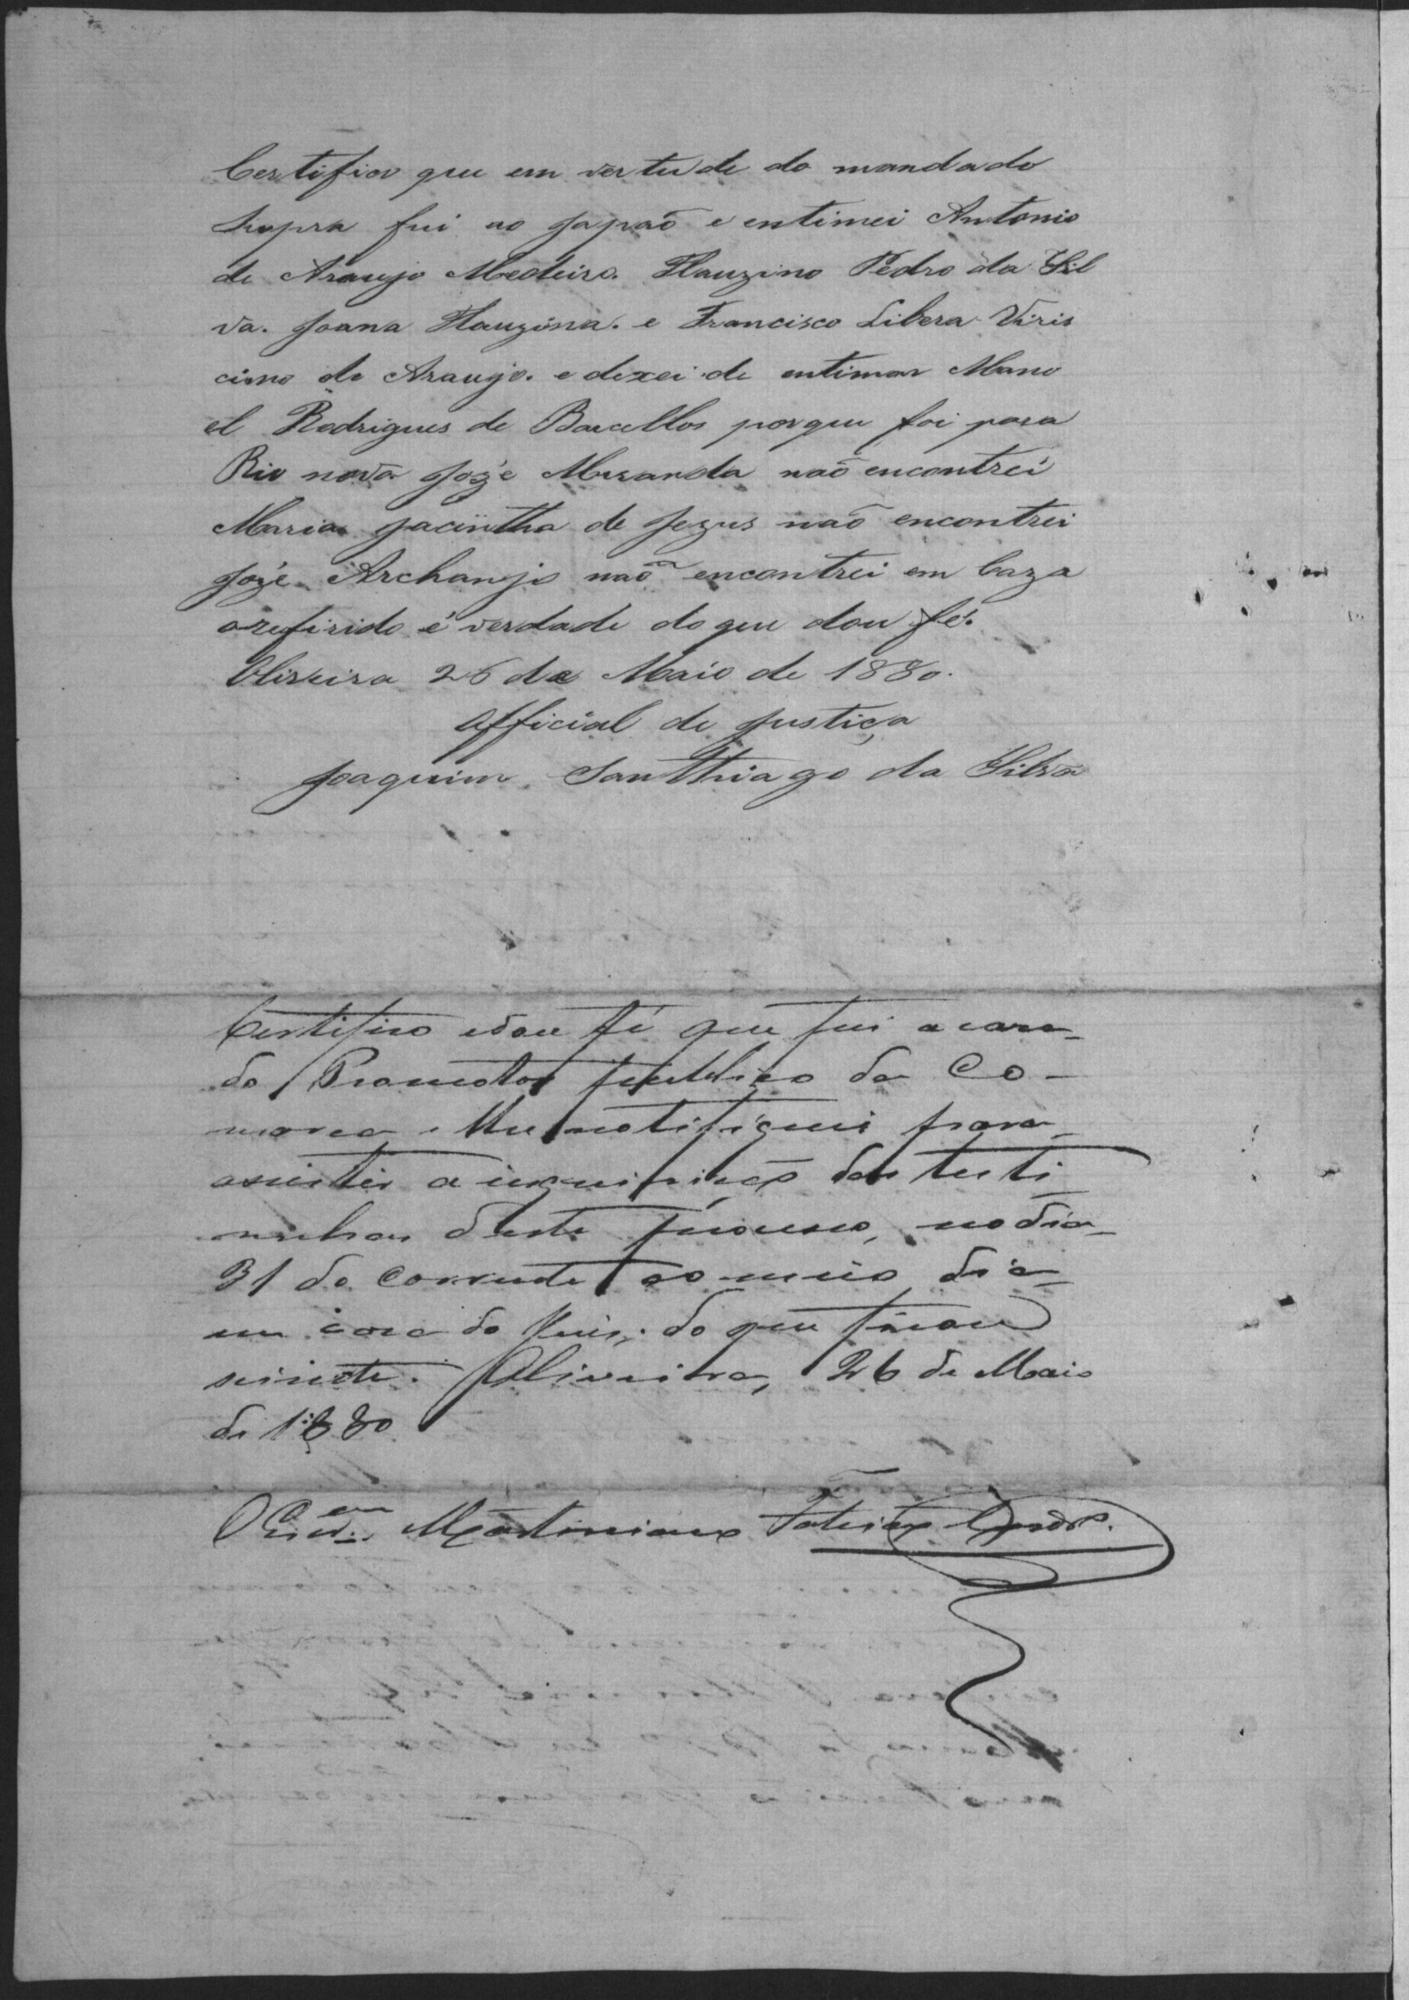 Certifico que em vertude do mandado
supra fui ao Japaõ e entimei Antonio
de Araujo Medeiro. Flauzino Pedro da Sil
va. Joana Flauzina. e Francisco Libera Viris
cimo de Araujo. e dexei de entimar Mano
el Rodrigues de Barcellos porque foi para
Rio novo Jozé Miranda naõ encontrei
Maria Jacintha de Jezus naõ encontrei
Jozé Archanjo naõ encontrei em Caza
orefirido é verdade do que dou fé.
Oliveira 26 de Maio de 1880.
Official de Justiça
Joaquim Santhiago da Silva
Certifico edou fé que fui a casa
do Promotor publico da Co-
marca e lhe notifiquei para
assistir a inquirição das teste
munhas deste processo, no dia
31 do Corrente ao meio dia
em casa do Juis, do que ficou
sciente. Oliveira, 26 de Maio
de 1880
O Escr.am Martiniano